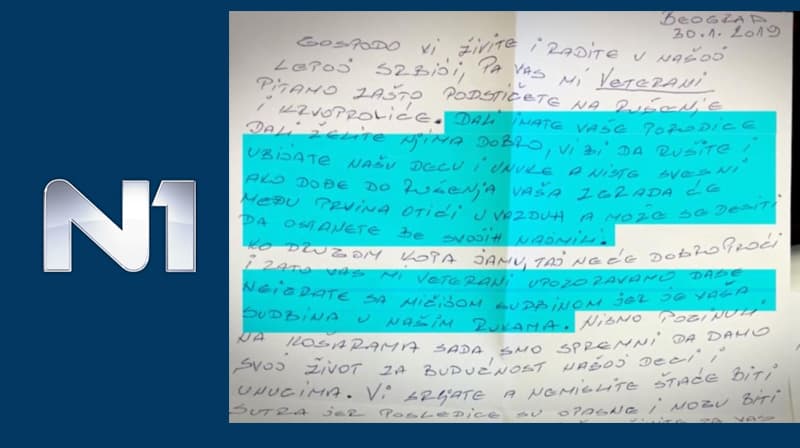 N1
BEOGRAD
30.1.2019
GOSPODO VI ŽIVITE I RADITE U NAŠOJ
LEPOJ SRBIJI, PA VAS MI VETERANI
PITAMO ZAŠTO PODSTIČETE NA RUŠENJE
I KRVOPROLIĆE. DALI IMATE VAŠE PORODICE
DALI ŽELITE NJIMA DOBRO, VI BI DA RUŠITE I
UBIJATE NAŠU DECU I UNUKE A NISTE SVESNI
AKO DOĐE DO RUŠENJA VAŠA ZGRADA ĆE
MEĐU PRVIMA OTIĆI U VAZDUH A MOŽE SE DESITI
DA OSTANETE BE SVOJIH NAJMILI.
KO DRUGOM KOPA JAMU, TAJ NEĆE DOBRO PROĆI
I ZATO VAS MI VETERANI UPOZORAVAMO DASE
NEIGRATE SA MIČIJOM SUDBINOM JER JE VAŠA
SUDBINA U NAŠIM RUKAMA. NISMO POGINULI
NA KOŠARAMA SADA SMO SPREMNI DA DAMO
SVOJ ŽIVOT ZA BUDUĆNOST NAŠOJ DECI I
UNUCIMA. VI SRLJATE A NEMISLITE ŠTAĆE BITI
SUTRA JER POSLEDICE SU OPASNE I MOGU BITI